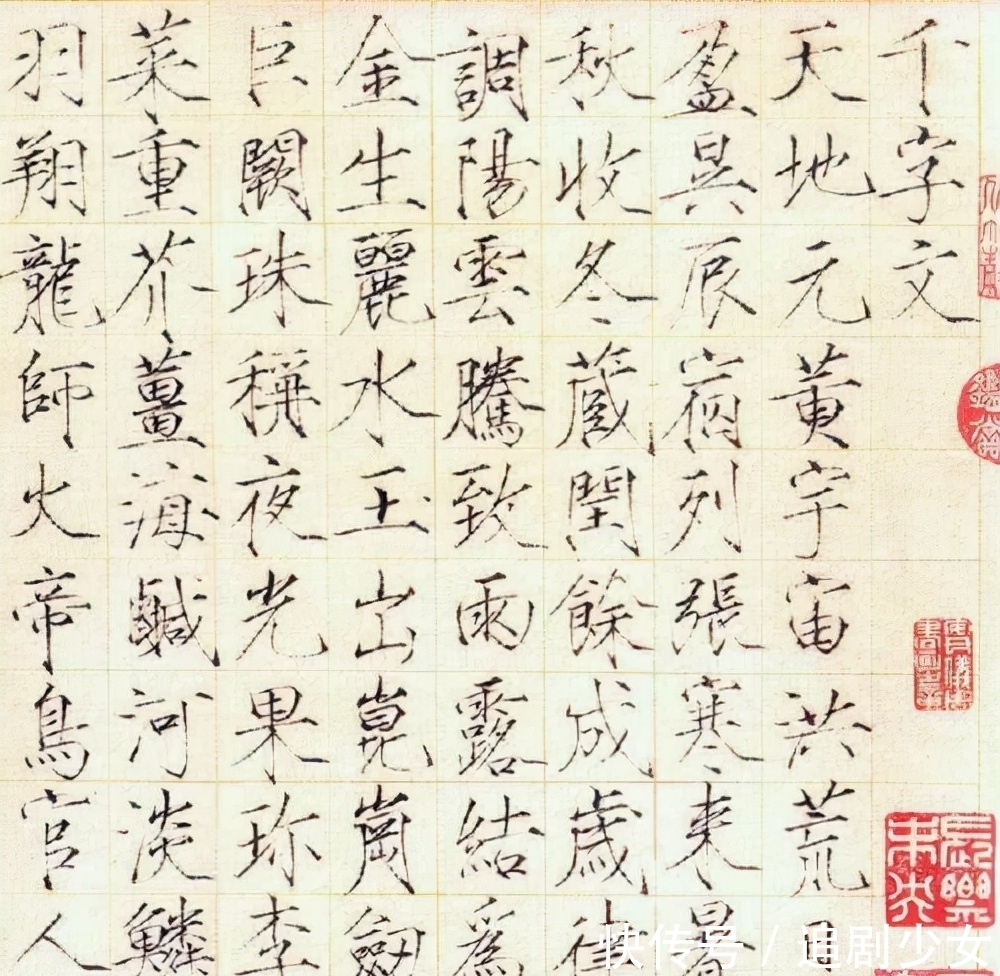 千字文
天地元黄宇宙洪荒日
盈昃辰宿列張寒来暑
秋收冬蔵閏餘成歳律
調陽雲騰致雨露結爲
金生麗水玉出崑崗劒
巨闕珠稱夜光果珎李
菜重芥薑海鹹河淡鱗
羽翔龍師火帝鳥官人
長樂
未央
快传号 / 追剧少女